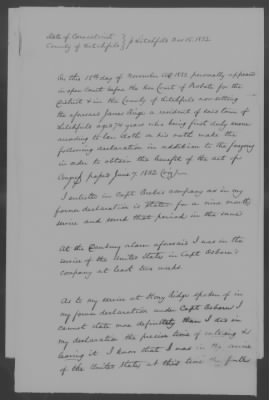 State of Connecticut } Litchfield Nov 15. 1832
County of Litchfield }
On this 15th day of November AD 1832 personally appeared
in open Court before the Hon Court of Probate for the
District & in the County of Litchfield now setting
the aforesaid James a resident of said town of
Litchfield aged 74 years who being first duly sworn
according to law doth on his oath make the
following declaration in addition to the foregoing
in order to obtain the benefit of the act of
Congress passed June 7. 1832 (viz)
I enlisted in Capt company as in my
former declaration is stated for a nine months
service and served that period in the same
At the Danbury alarm aforesaid I was in the
service of the United States in Capt Osborn's
company at least two weeks.
As to my service at Stony Ridge spoken of in
my former declaration under Capt Osborn I
cannot state more definitely than I did in
my declaration the precise time of entering &
leaving it I know that I was in the service
of the United States at that time the full